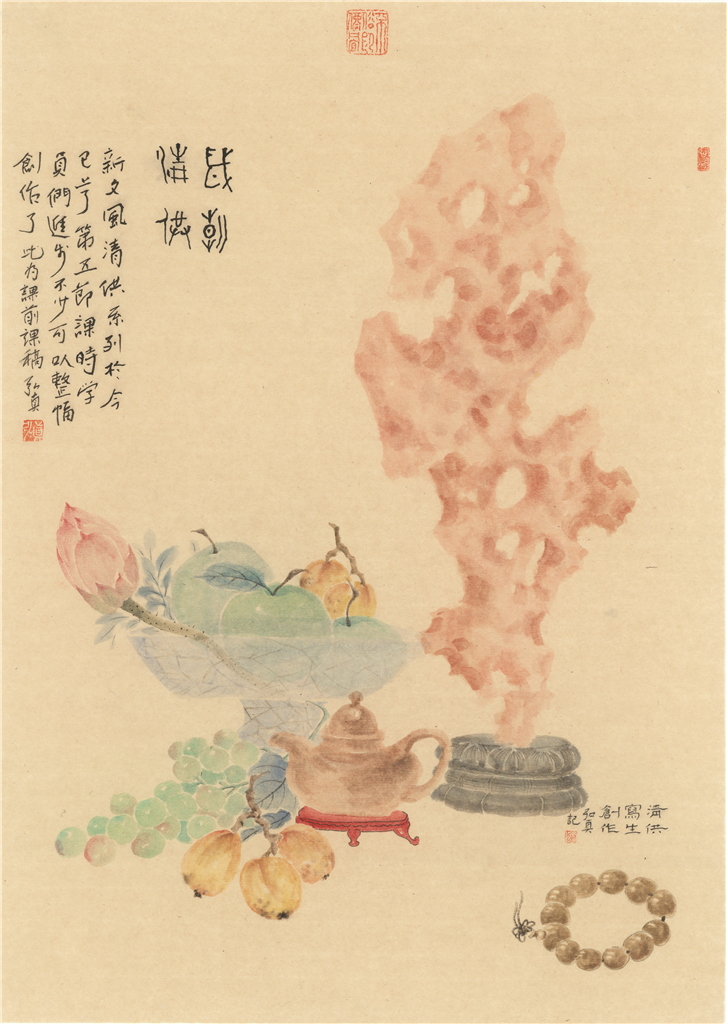 歲朝
清供
新文風清供系列於今
已是第五節課時学
員們進步不少可以整幅
創作了 此為課前課稿 弘真
清供
寫生
創作
弘真
記